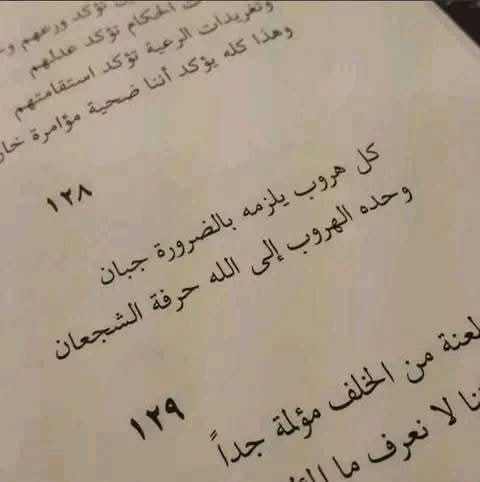 تؤكد ورعهم
الحكام تؤكد عدلهم
وتغريدات الرعية تؤكد استقامتهم
وهذا كله يؤكد أننا ضحية مؤامرة
١٢٨
كل هروب يلزمه بالضرورة جبان
وحده الهروب إلى الله حرفة الشجعان
١٢٩
من الخلف مؤلمة جداً
لا نعرف ما